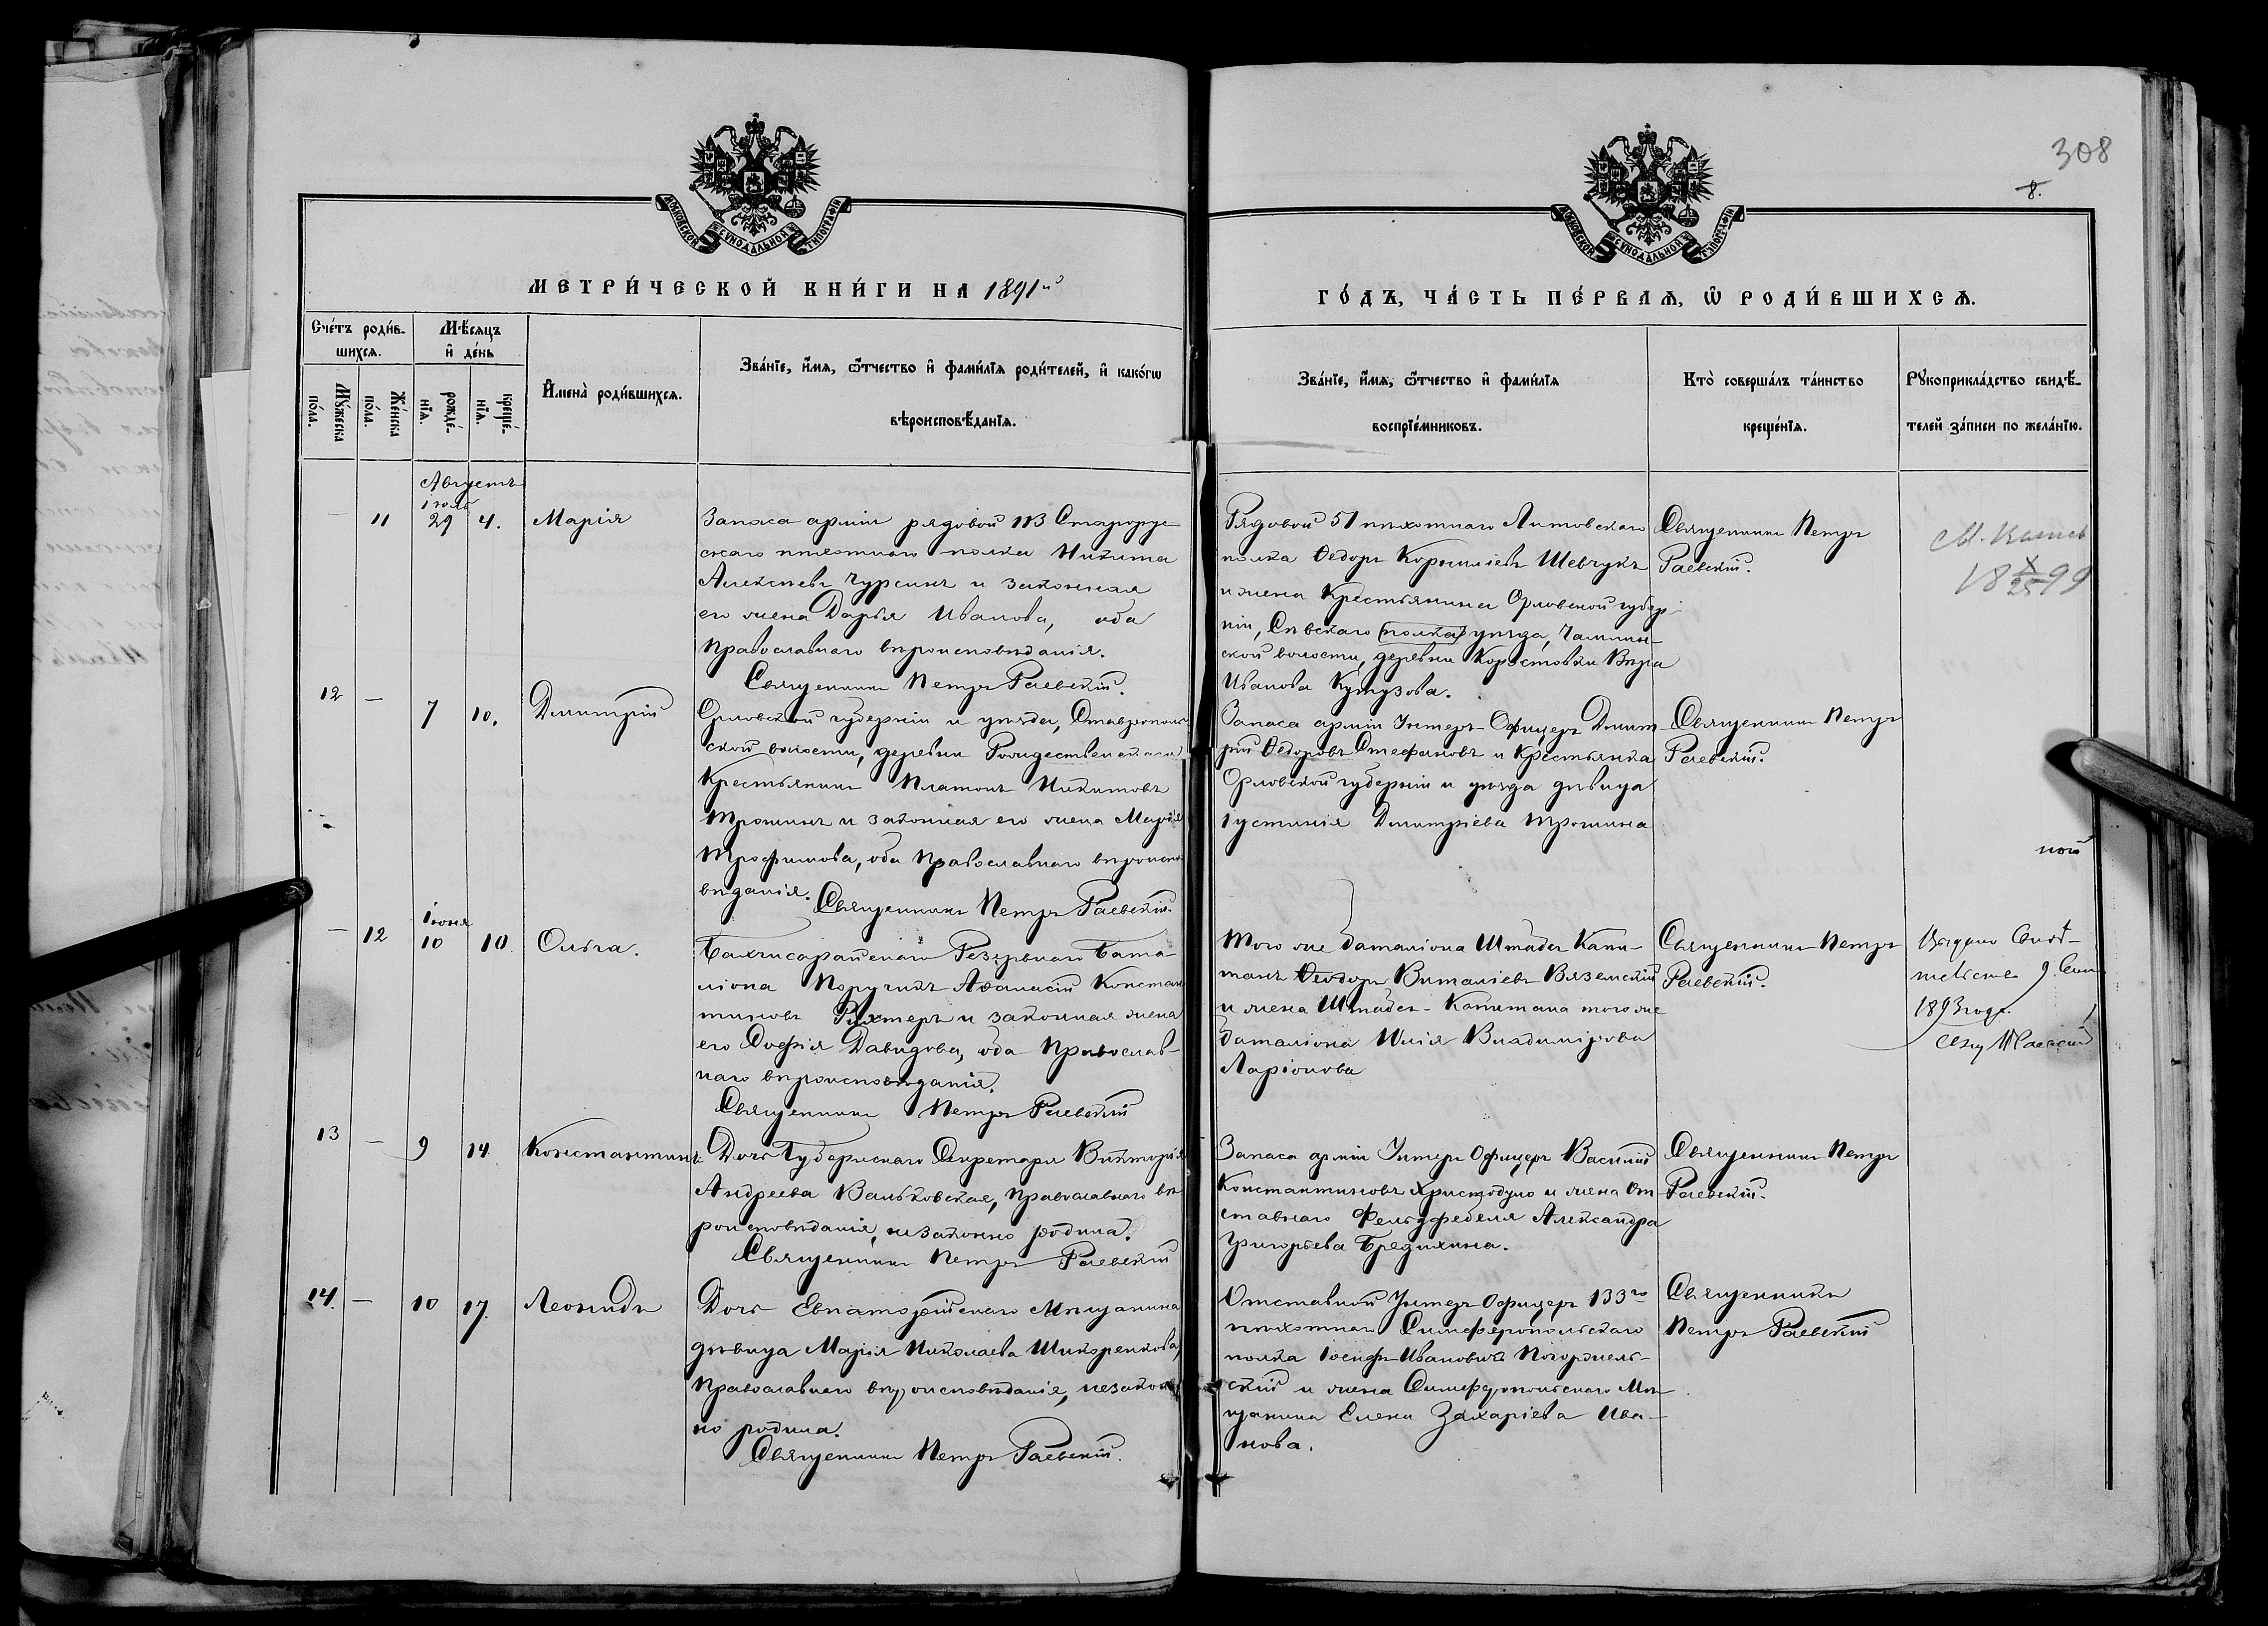 308
8.
МОСКОВСКОЙ СѴНОДАЛЬНОЙ ТИПОГРАФІИ
МОСКОВСКОЙ СѴНОДАЛЬНОЙ ТИПОГРАФІИ
МЕТРИ́ЧЕСКОЙ КНИ́ГИ НА 1891й
ГО́ДЪ, ЧА́СТЬ ПЕ́РВАѦ, Ѡ РОДИ́ВШИХСѦ.
Сче́тъ роди́в-
шихсѧ.
Мѣ́сѧцъ
и҆ де́нь
Мꙋ́жеска
по́ла.
Же́нска
по́ла.
рожде́-
нїѧ.
креще́-
нїѧ.
И҆мена̀ роди́вшихсѧ.
Зва́нїе, и҆́мѧ, ѻ҆́тчество и҆ фами́лїѧ роди́телей, и҆ како́гѡ
вѣроисповѣ́данїѧ.
Зва́нїе, и҆́мѧ, ѻ҆́тчество и҆ фами́лїѧ
воспрїе́мниковъ.
Кто̀ соверша́лъ та́инство
креще́нїѧ.
Рꙋкоприкла́дство свидѣ́-
телей за́писи по жела́нїю.
Августъ
іюль
11 29 4. Марія
Запаса арміи рядовой 113 Старорус-
скаго пѣхотнаго полка Никита
Алексѣевъ Чурсинъ и законная
его жена Дарья Иванова, оба
православнаго вѣроисповѣданія.
Священникъ Петръ Раевскій.
Рядовой 51 пѣхотнаго Литовскаго
полка Ѳедоръ Корниліевъ Шевчукъ
и жена Крестьянина Орловской губер-
ніи, Сѣвскаго (полка) уѣзда,
ской волости, деревни Коростовки Вѣра
Иванова Кутузова.
Священникъ Петръ
Раевскій.
18 X/25 99
12 — 7 10. Дмитрій
Орловской губерніи и уѣзда, Ставрополь-
ской волости, деревни Рождественской
Крестьянинъ Платонъ Никитовъ
Трошинъ и законная его жена Марія
Трофимова, оба Православнаго вѣроиспо-
вѣданія. Священникъ Петръ Раевскій.
Запаса арміи Унтеръ-Офицеръ Димит-
рій Ѳедоровъ Стефановъ и Крестьянка
Орловской губерніи и уѣзда дѣвица
Іустинія Дмитріева Трошина
Священникъ Петръ
Раевскій.
Іюня
— 12 10 10 Ольга.
Бахчисарайскаго Резервнаго Бата-
ліона Поручикъ Аѳанасій Констан-
тиновъ Рихтеръ и законная жена
его Софія Давидова, оба Православ-
наго вѣроисповѣданія.
Священникъ Петръ Раевскій
Того же баталіона Штабсъ Капи-
танъ Ѳеодоръ Виталіевъ Вяземскій
и жена Штабсъ-Капитана того же
баталіона Юлія Владимірова
Ларіонова
Священникъ Петръ
Раевскій.
Выдано Свид-
тельство 9. Сен
1893 года.
13 — 9 14 Константинъ
Дочь Губернскаго Секретаря Викторія
Андреева Вальковская, православнаго вѣ-
роисповѣданія, незаконно родила.
Священникъ Петръ Раевскій
Запаса арміи Унтеръ Офицеръ Василій
Константиновъ Христодуло и жена От-
ставнаго Фельдфебеля Александра
Григорьева Бредихина.
Священникъ Петръ
Раевскій.
14. — 10 17. Леонидъ
Дочь Евпаторійскаго Мѣщанина
дѣвица Марія Николаева Шикоренкова,
Православнаго вѣроисповѣданія, незакон-
но родила.
Священникъ Петръ Раевскій.
Отставной Унтеръ Офицеръ 133го
пѣхотнаго Симферопольскаго
полка Іосифъ Ивановичъ Погоржель-
скій и жена Симферопольскаго Мѣ-
щанина Елена Захаріева Ива-
нова.
Священникъ
Петръ Раевскій